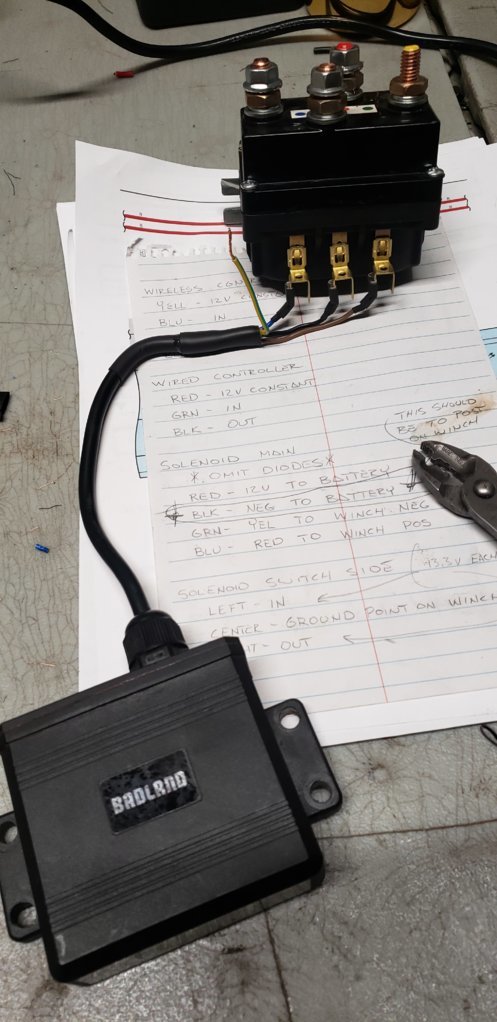 WIRELESS CON
YELL - 12V CONST
BLU - IN
WIRED CONTROLLER
RED - 12V CONSTANT
GRN - IN
BLK - OUT
THIS SHOULD
BE TO POS
ON WINCH
SOLENOID MAIN
* OMIT DIODES *
RED - 12V TO BATTERY
BLK - NEG TO BATTERY
GRN - YEL TO WINCH NEG
BLU - RED TO WINCH POS
SOLENOID SWITCH SIDE
EACH
LEFT - IN
CENTER - GROUND POINT ON WINCH
HT - OUT
BADLAND